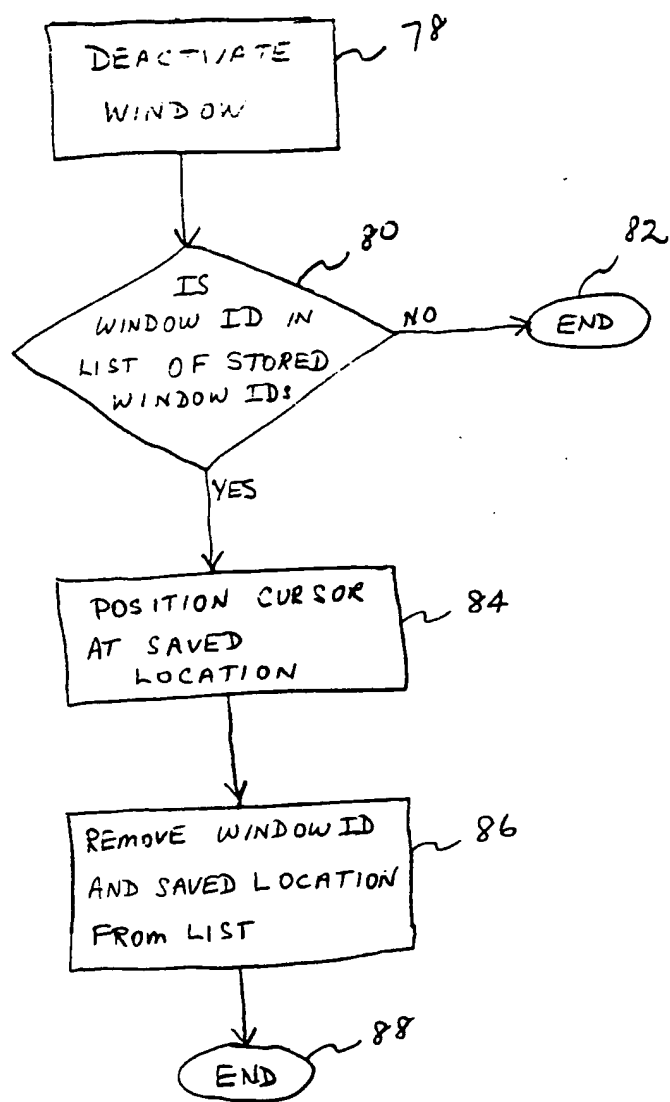 DEACTIVATE
WINDOW
78
80
IS
WINDOW ID IN
LIST OF STORED
WINDOW IDs
NO
82
END
YES
POSITION CURSOR
AT SAVED
LOCATION
84
REMOVE WINDOW ID
AND SAVED LOCATION
FROM LIST
86
END
88